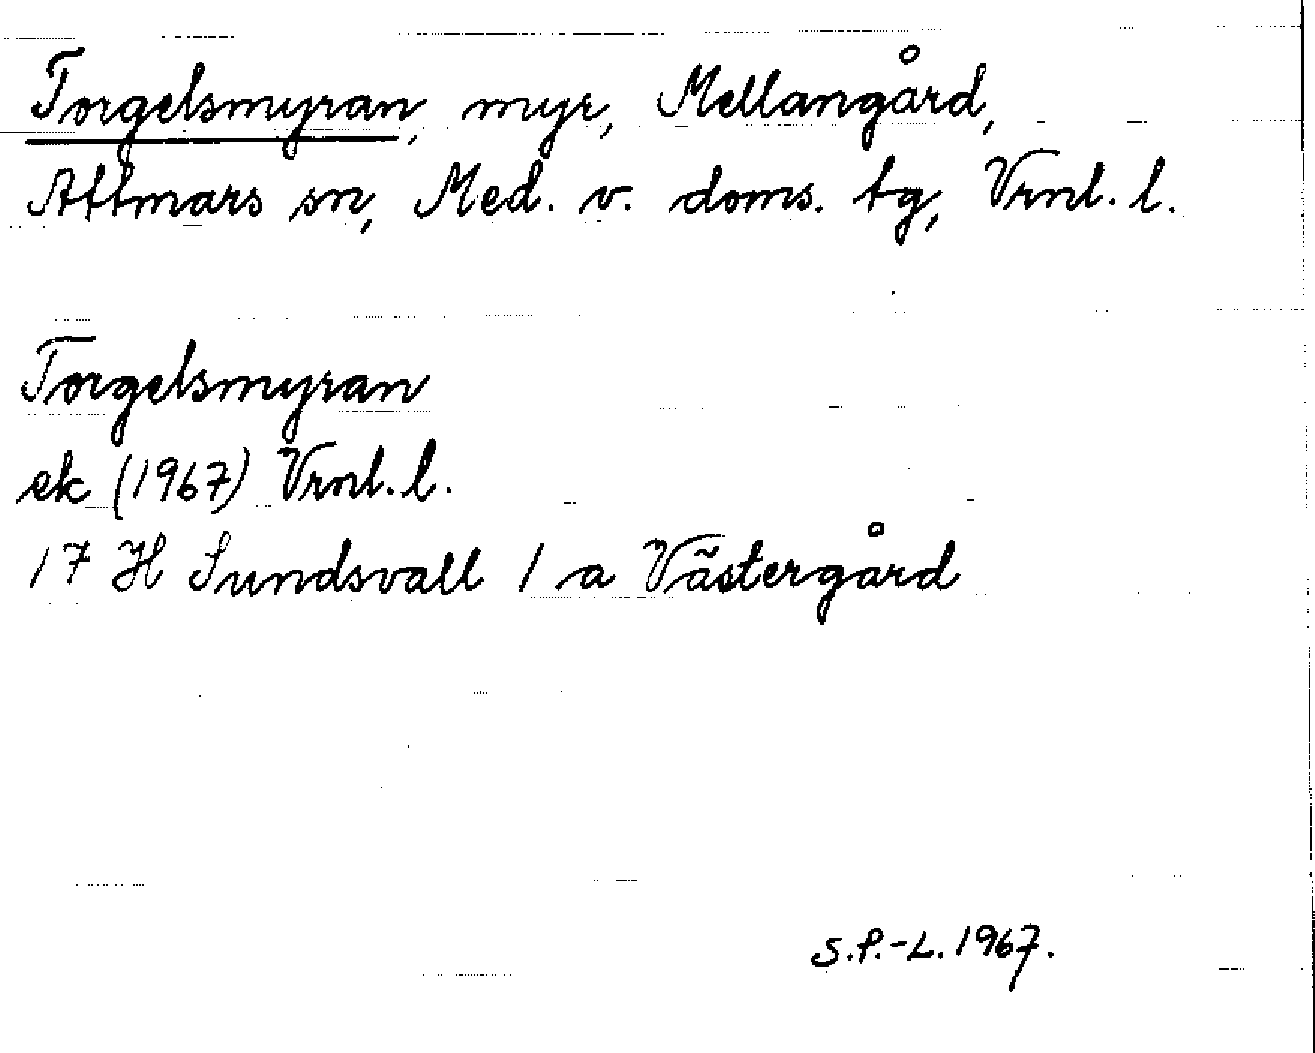 Torgelsmyran, myr, Mellangård,
Attmars sn, Med. v. doms. tg, Vrnl. l.
Torgelsmyran
ek (1967) Vrnl. l.
17 H Sundsvall 1 a Västergård
S.P.-L. 1967.